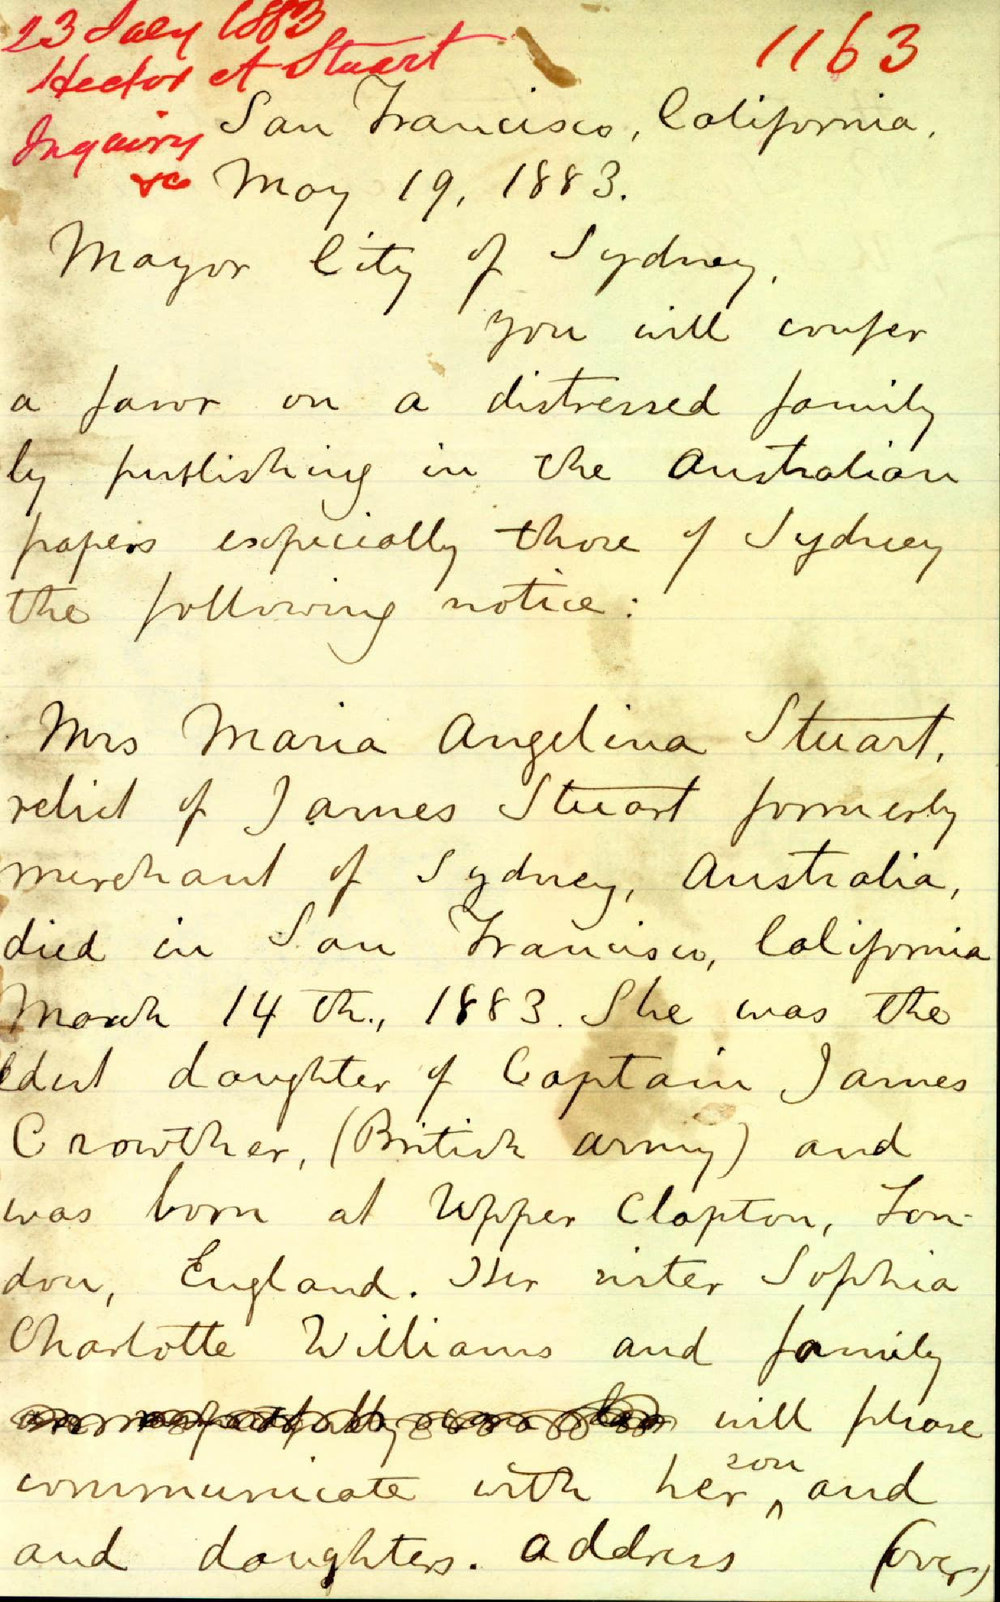 23 July 1883
Hector A Stuart
Inquiry
&c
1163
San Francisco, California,
May 19, 1883.
Mayor City of Sydney,
you will confer
a favor on a distressed family
by publishing in the Australian
papers especially those of Sydney
the following notice:
Mrs Maria Angelina Stuart,
relict of James Stuart formerly
merchant of Sydney, Australia,
died in San Francisco, California
March 14th., 1883. She was the
eldest daughter of Captain James
Crowther, (British army) and
was born at Upper Clapton, Lon-
don, England. Her sister Sophia
Charlotte Williams and family
will please
communicate with her son and
and daughters. Address (over)